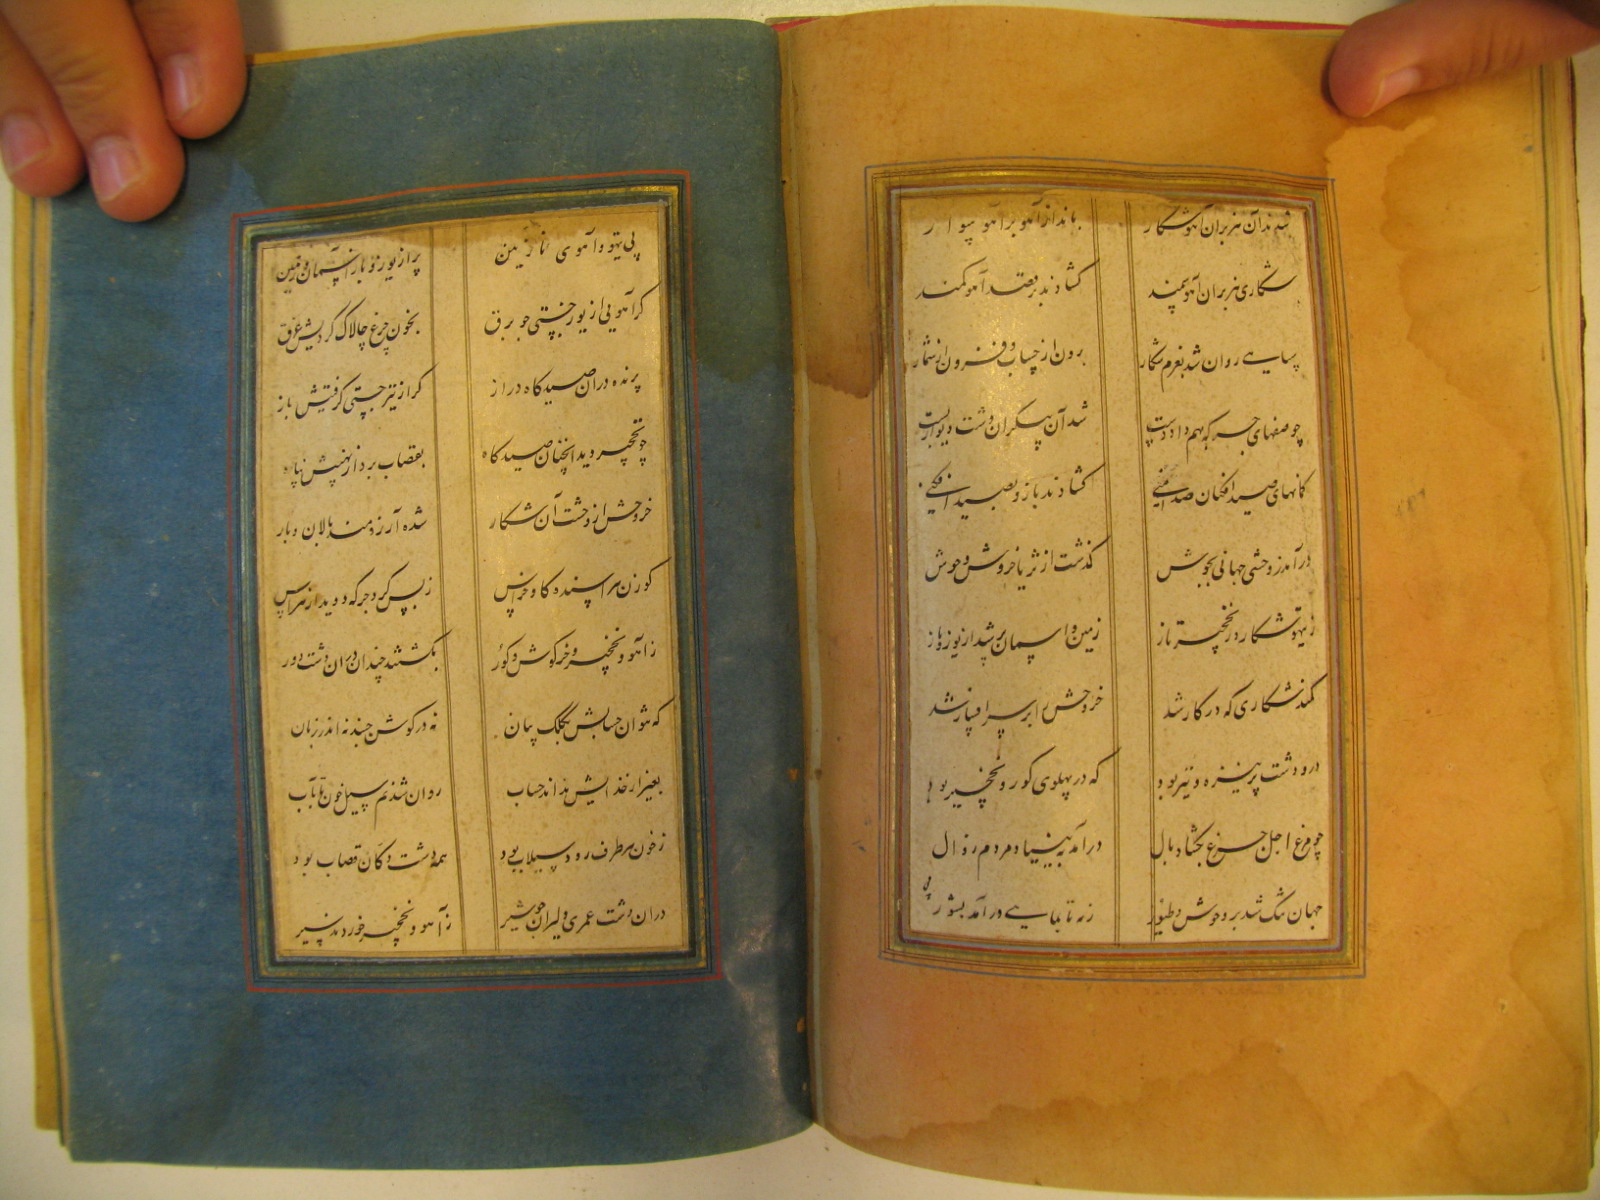 شدند آن هزبران آهو شکار بانداز آهو بر آهو سوار
شکاری هزبران آهو کمند کشادند بر قصد آهو کمند
سپاهی روان شد بعزم شکار برون از حساب و فزون از شمار
چو صفهای جرکه بهم داد دست شد آن پیکران دشت دیوار بست
کمانهای صید افکنان صد منی کشادند بازو بصید افکنی
درآمد ز وحشی جهانی بجوش کذشت از ثریا خروش وحوش
ز تیهو شکار و ز نخچیر تاز زمین و آسمان پر شد از یوز و باز
کمند شکاری که در کار شد
در و دشت پر نیزه و تیر بود که در پهلوی کور و نخچیر بود
چو مرغ اجل چرغ بکشاد بال درآمد به بیضا و مردم زوال
جهان تنک شد بر وحوش و طیور ز مه تا بماهی درآمد بشور
پی
پی تیهو و آهوی نازنین پر از یوز و باز آسمان و زمین
کر آهویی از یوز جستی چو برق بخون چرغ چالاک کردیش غرق
پرنده در آن صیدکاه دراز کر از تیر جستی کرفتیش باز
چو نخچیر دید آنچنان صیدکاه بقصاب برد از نهیبش پناه
خروش از وحشت آن شکار شده آرزومند بالان و بار
کوزن هراسنده کاو خراس ز بس کرد جرکه دوید از هراس
ز آهو و نخچیر و خرکوش و کور بکشتند چندان در آن دشت دور
که نتوان حسابش بکلک بیان نه در کوش کنجد نه اندر زبان
بغیر از خدایش نداند حساب روان شد نم سیل خون تا بآب
ز خون هر طرف رود سیلاب بود همه دشت دکان قصاب بود
در آن دشت عمری دلیران چو شیر ز آهو و نخچیر خوردند سیر